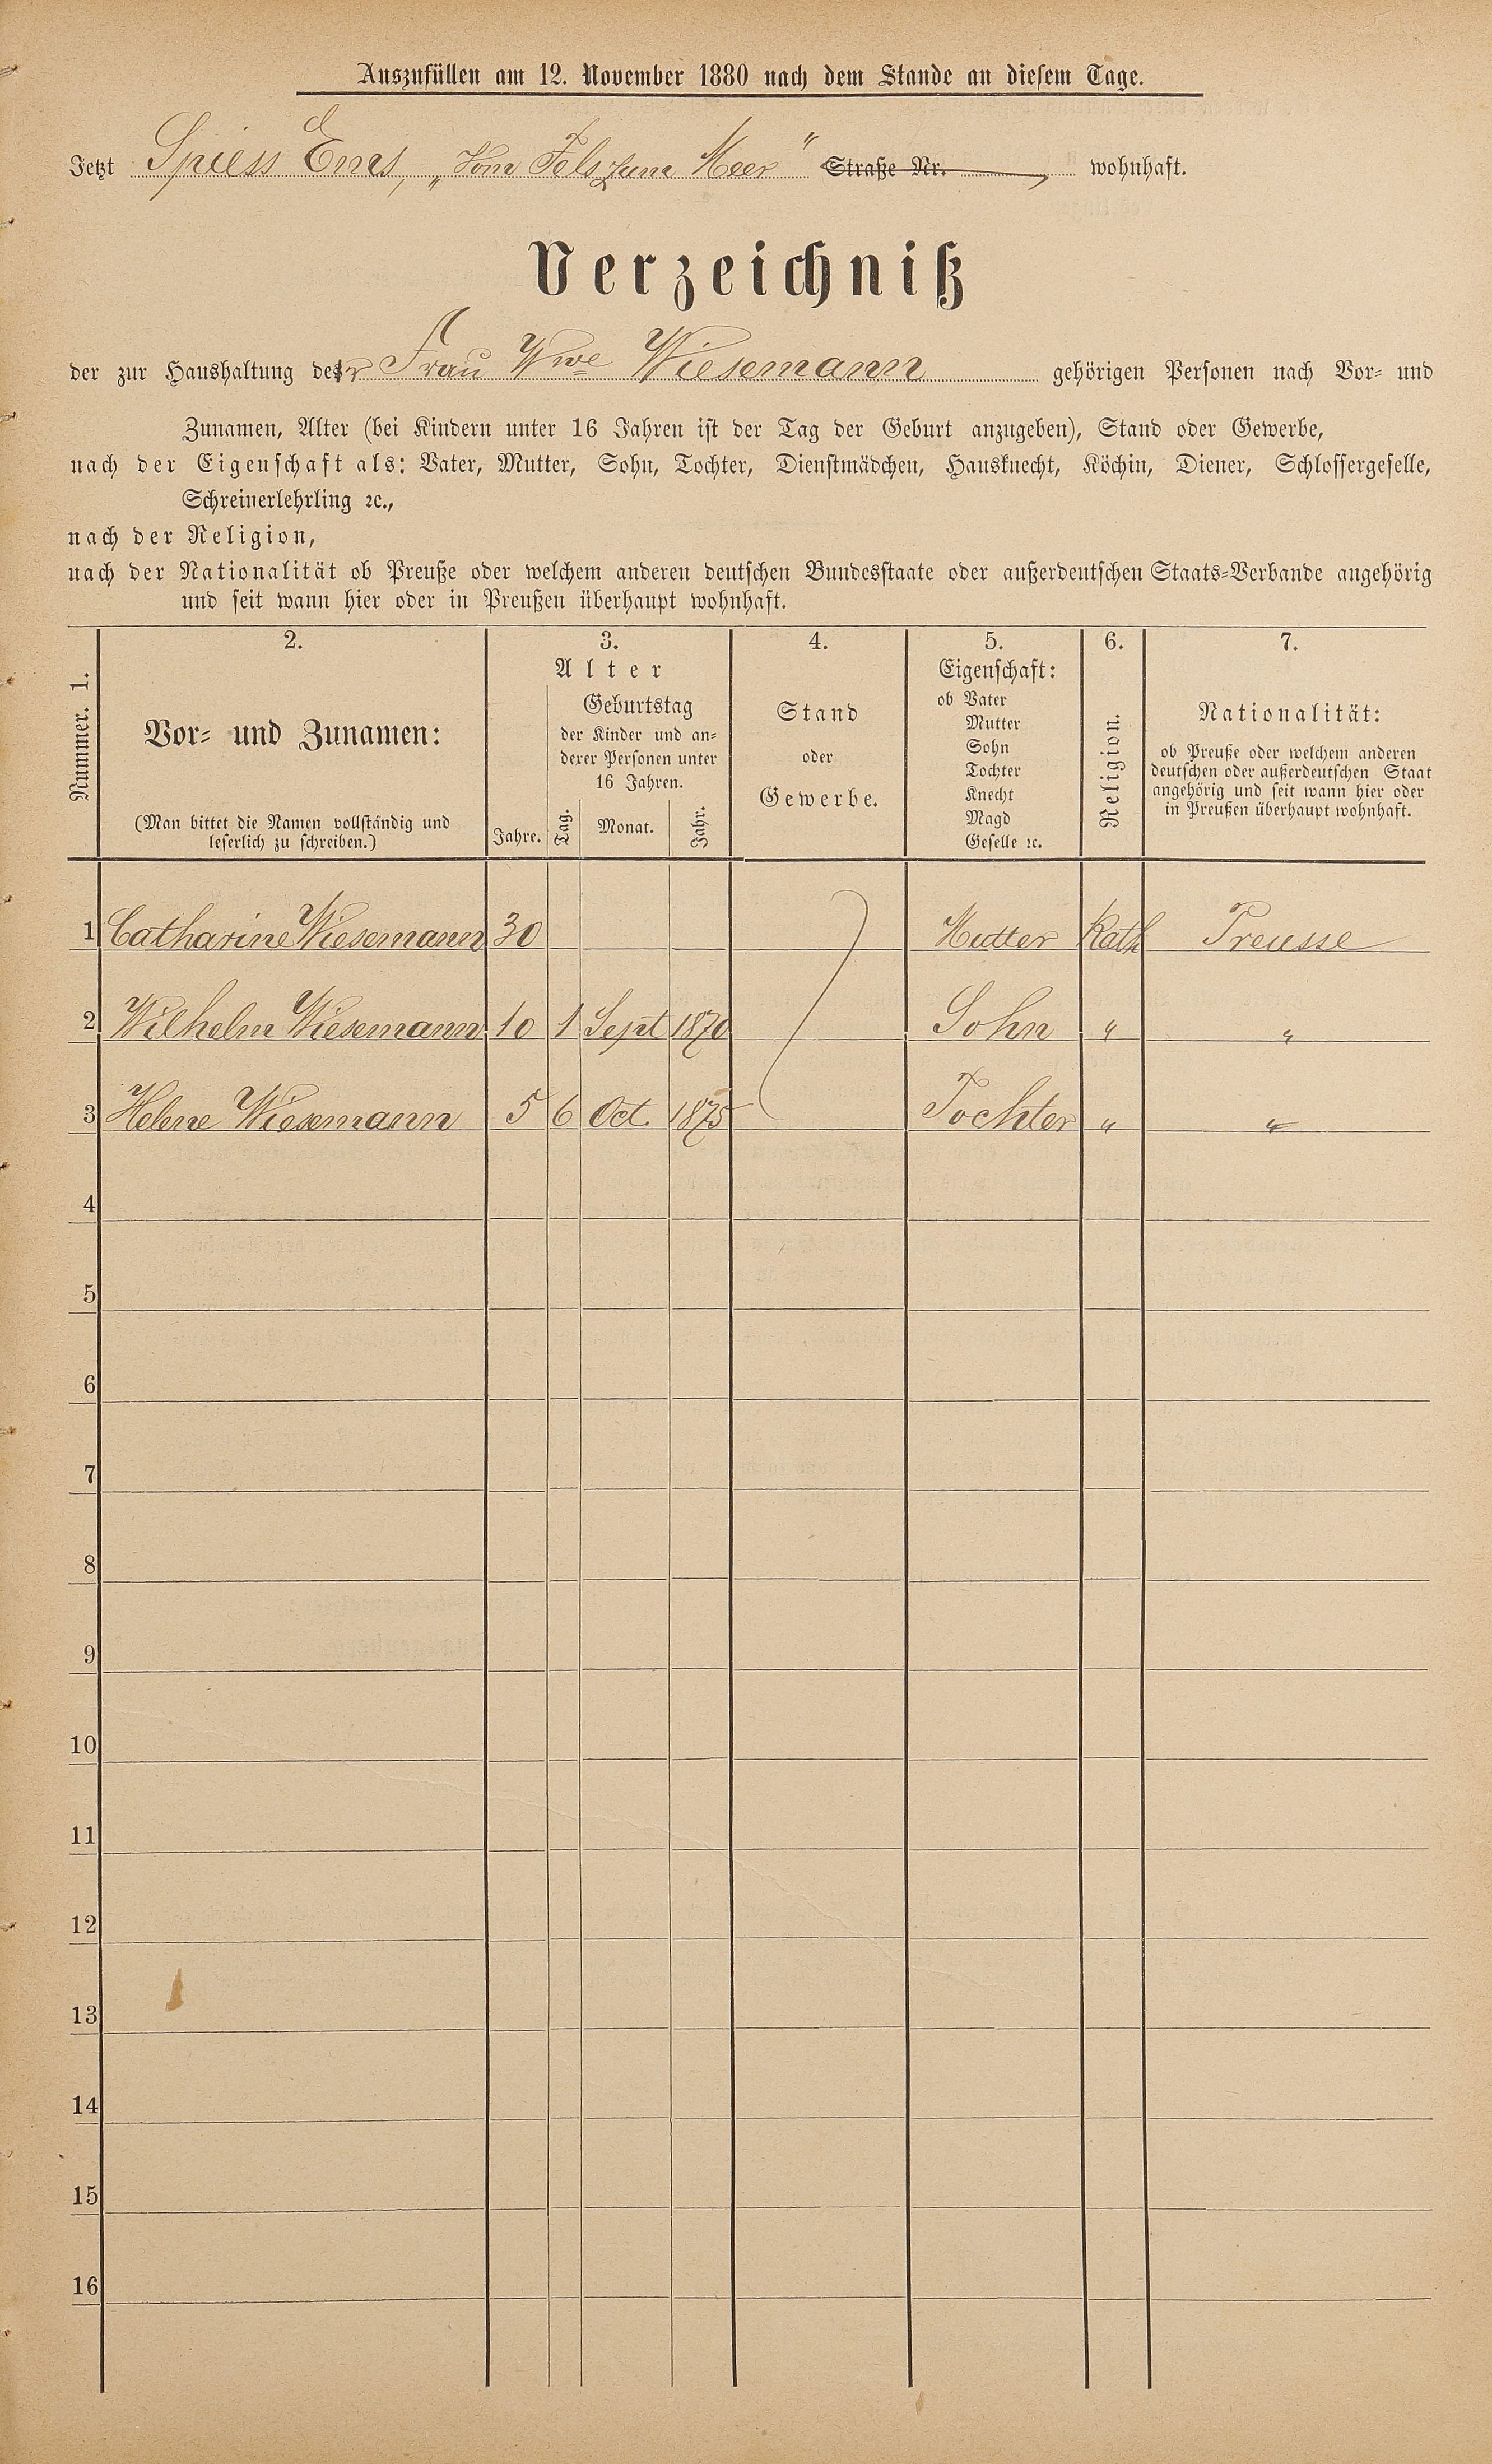 Auszufüllen am 12. November 1880 nach dem Stande an diesem Tage.
Jetzt Spiess Ems, „Vom Fels zum Meer“ Straße Nr. wohnhaft.
Verzeichniß
der zur Haushaltung der Frau Wwe Wiesemann gehörigen Personen nach Vor- und
Zunamen, Alter (bei Kindern unter 16 Jahren ist der Tag der Geburt anzugeben), Stand oder Gewerbe,
nach der Eigenschaft als: Vater, Mutter, Sohn, Tochter, Dienstmädchen, Hausknecht, Köchin, Diener, Schlossergeselle,
Schreinerlehrling ꝛc.,
nach der Religion,
nach der Nationalität ob Preuße oder welchem anderen deutschen Bundesstaate oder außerdeutschen Staats-Verbande angehörig
und seit wann hier oder in Preußen überhaupt wohnhaft.
Nummer. 1.
2.
Vor- und Zunamen:
(Man bittet die Namen vollständig und
leserlich zu schreiben.)
3.
Alter
Geburtstag
der Kinder und an-
derer Personen unter
16 Jahren.
Jahre. Tag. Monat. Jahr.
4.
Stand
oder
Gewerbe.
5.
Eigenschaft:
ob Vater
Mutter
Sohn
Tochter
Knecht
Magd
Geselle ꝛc.
6.
Religion.
7.
Nationalität:
ob Preuße oder welchem anderen
deutschen oder außerdeutschen Staat
angehörig und seit wann hier oder
in Preußen überhaupt wohnhaft.
1 Catharine Wiesemann 30 Mutter Kath Preusse
2 Wilhelm Wiesemann 10 1 Sept 1870 Sohn " "
3 Helene Wiesemann 5 6 Oct. 1875 Tochter " "
4
5
6
7
8
9
10
11
12
13
14
15
16